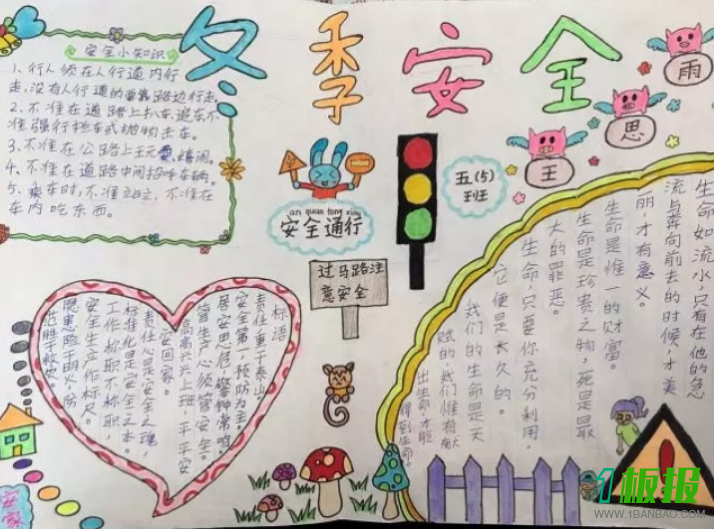 冬季安全
安全小知识
1、行人须在人行道内行
走,没有人行道的要靠路边行走。
2、不准在道路上扒车、追车,不
准强行拦车或抛物击车。
3、不准在公路上玩耍、嬉闹。
4、不准在道路中间招呼车辆。
5、乘车时,不准站立,不准在
车内吃东西。
an quan tong xing
安全通行
过马路注
意安全
五(5)
班
王
思
雨
标语
责任重于泰山。
安全第一,预防为主。
居安思危,警钟常鸣。
管生产必须管安全。
高高兴兴上班,平平安
安回家。
责任心是安全之魂,
标准化是安全之本。
工作称职不称职,
安全生产作标尺。
隐患险于明火,防
范胜于救灾。
生命如流水,只有在他的急
流与奔向前去的时候,才美
丽,才有意义。
生命是惟一的财富。
生命是珍贵之物,死是最
大的罪恶。
生命,只要你充分利用,
它便是长久的。
我们的生命是天
赋的,我们惟有献
出生命,才能
得到生命。
安家
1板报
WWW.1BANBAO.COM